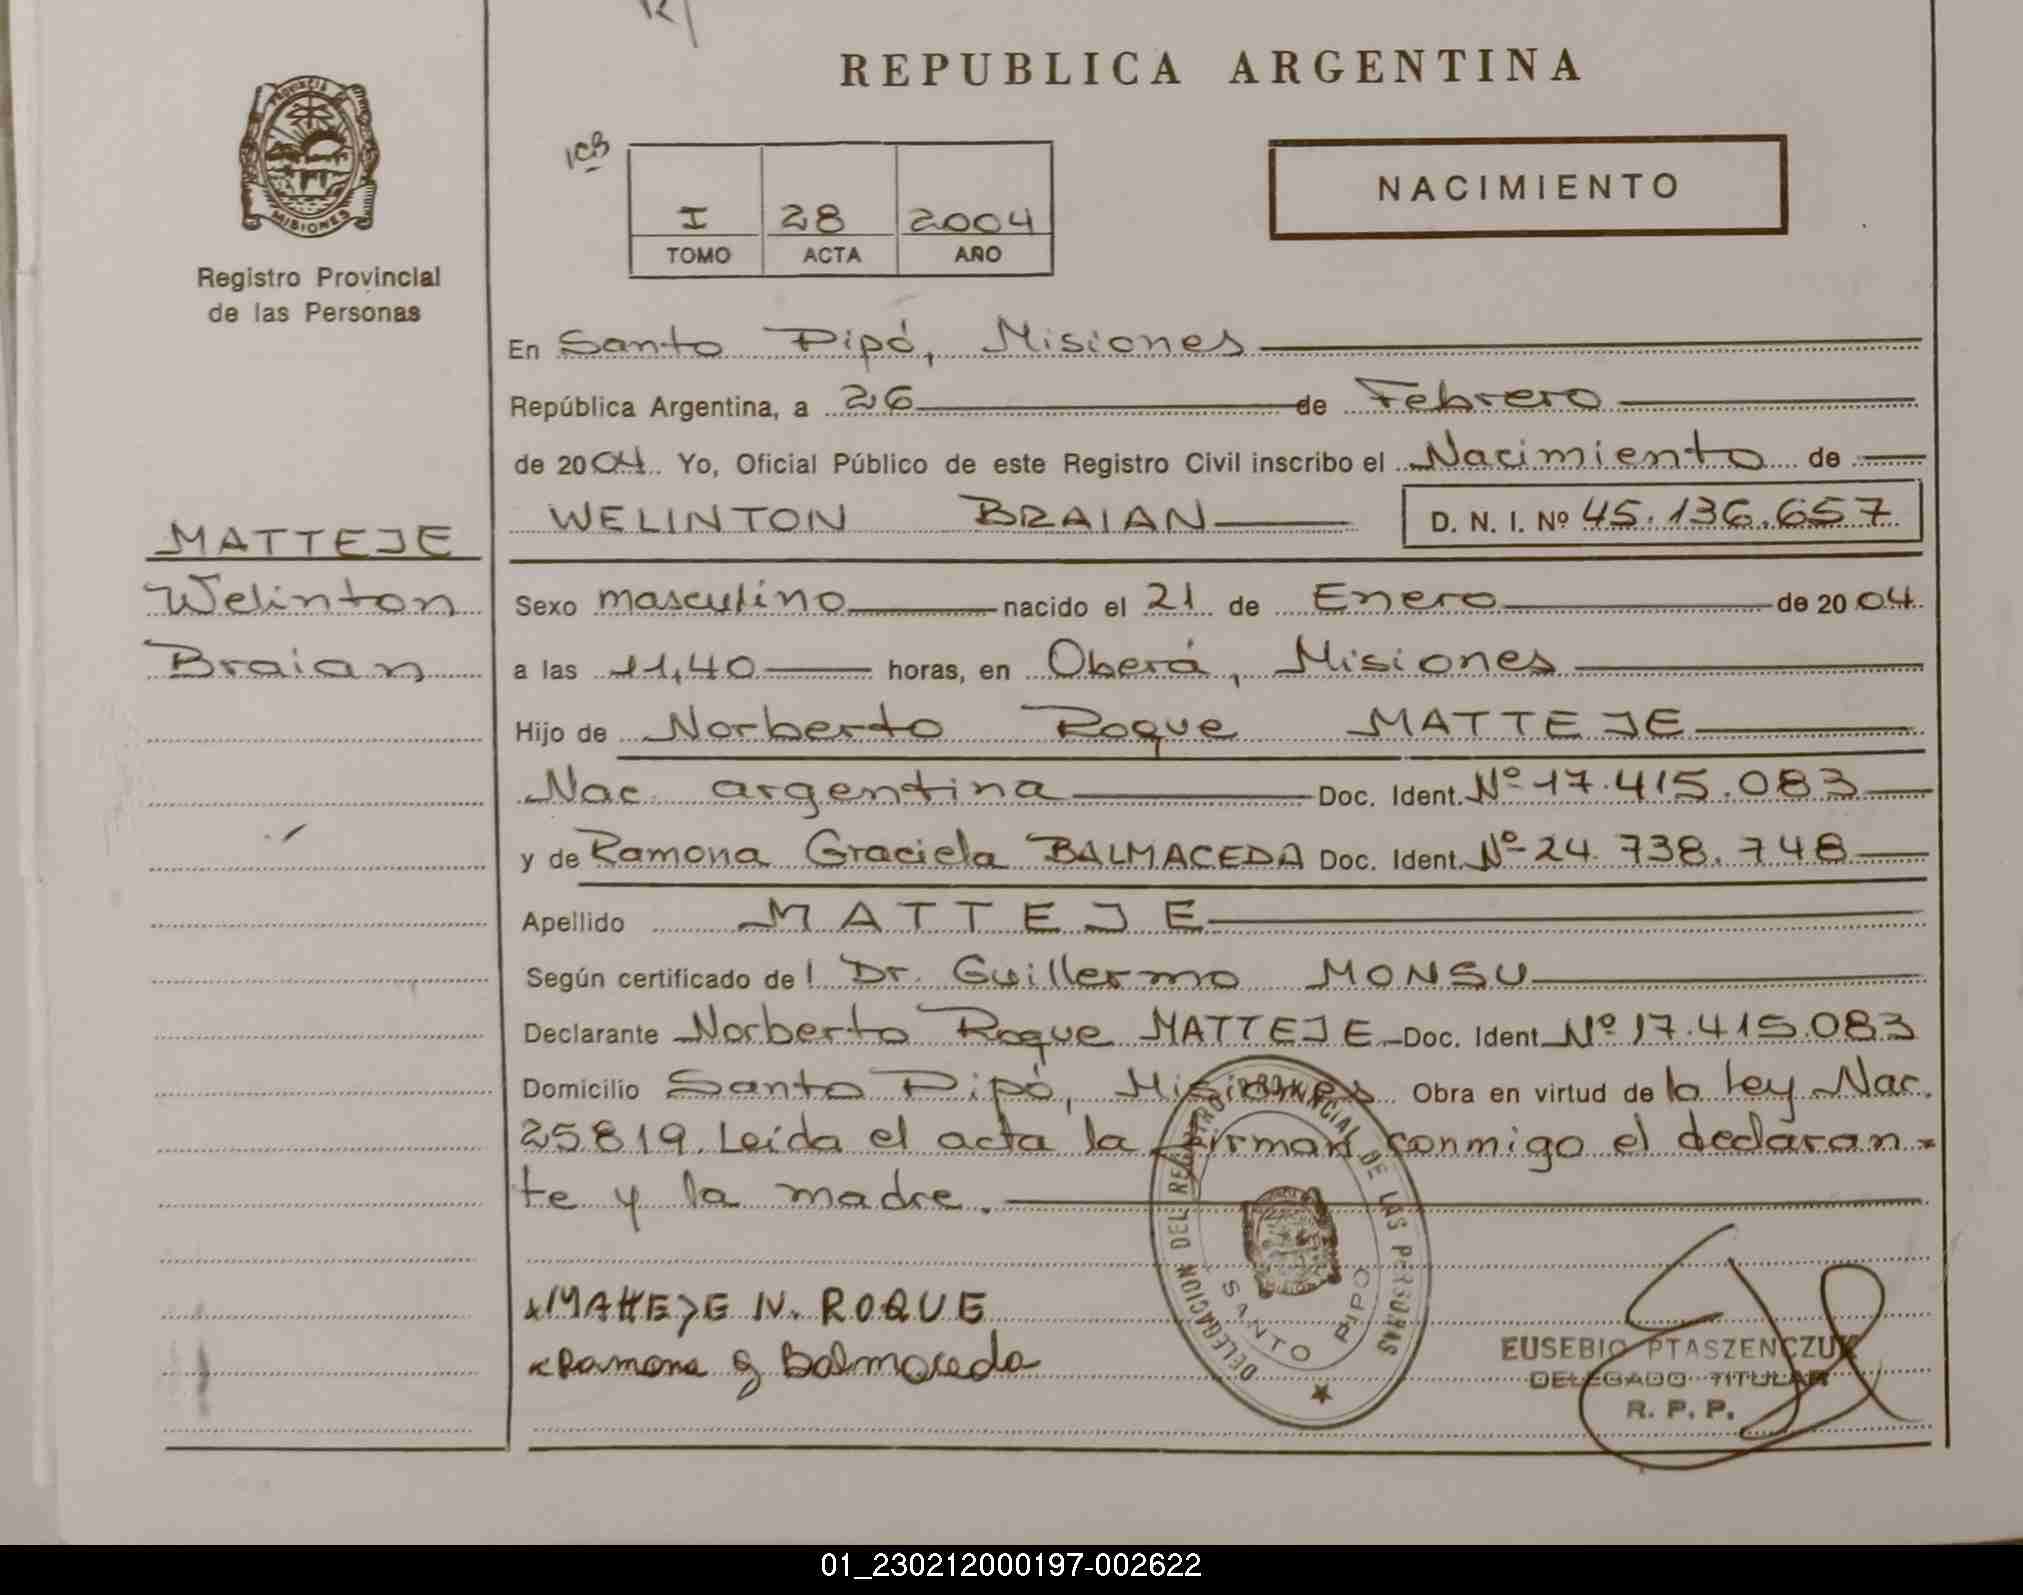 REPUBLICA ARGENTINA
PROVINCIA DE
MISIONES
Registro Provincial
de las Personas
I 28 2004
TOMO ACTA AÑO
NACIMIENTO
En Santo Pipó, Misiones
República Argentina, a 26 de Febrero
de 2004. Yo, Oficial Público de este Registro Civil inscribo el Nacimiento de
WELINTON BRAIAN D. N. I. Nº 45.136.657
MATTEJE
Welinton
Braian
Sexo masculino nacido el 21 de Enero de 2004
a las 11,40 horas, en Oberá, Misiones
Hijo de Norberto Roque MATTEJE
Nac. argentina Doc. Ident. Nº 17.415.083
y de Ramona Graciela BALMACEDA Doc. Ident. Nº 24.738.748
Apellido MATTEJE
Según certificado del Dr. Guillermo MONSU
Declarante Norberto Roque MATTEJE Doc. Ident Nº 17.415.083
Domicilio Santo Pipó, Misiones Obra en virtud de la Ley Nac.
25.819. Leída el acta la firman conmigo el declaran-
te y la madre.
DELEGACION DEL REGISTRO PROVINCIAL DE LAS PERSONAS
SANTO PIPO
MATTEJE N. ROQUE
Ramona g Balmaceda
EUSEBIO PTASZENCZUK
DELEGADO TITULAR
R. P. P.
01_230212000197-002622